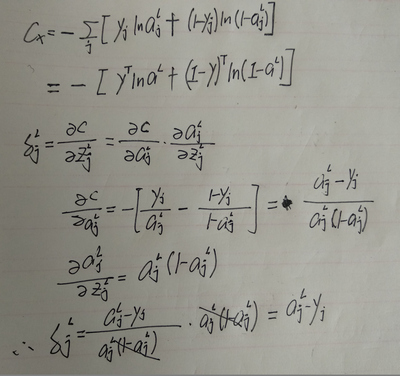 Cx = -∑j [yj ln aj^L + (1-yj) ln(1-aj^L)]
= -[y^T ln a^L + (1-y)^T ln(1-a^L)]
δj^L = ∂C/∂zj^L = ∂C/∂aj^L · ∂aj^L/∂zj^L
∂C/∂aj^L = -[yj/aj^L - (1-yj)/(1-aj^L)] = (aj^L - yj)/(aj^L(1-aj^L))
∂aj^L/∂zj^L = aj^L(1-aj^L)
∴ δj^L = (aj^L - yj)/(aj^L(1-aj^L)) · aj^L(1-aj^L) = aj^L - yj